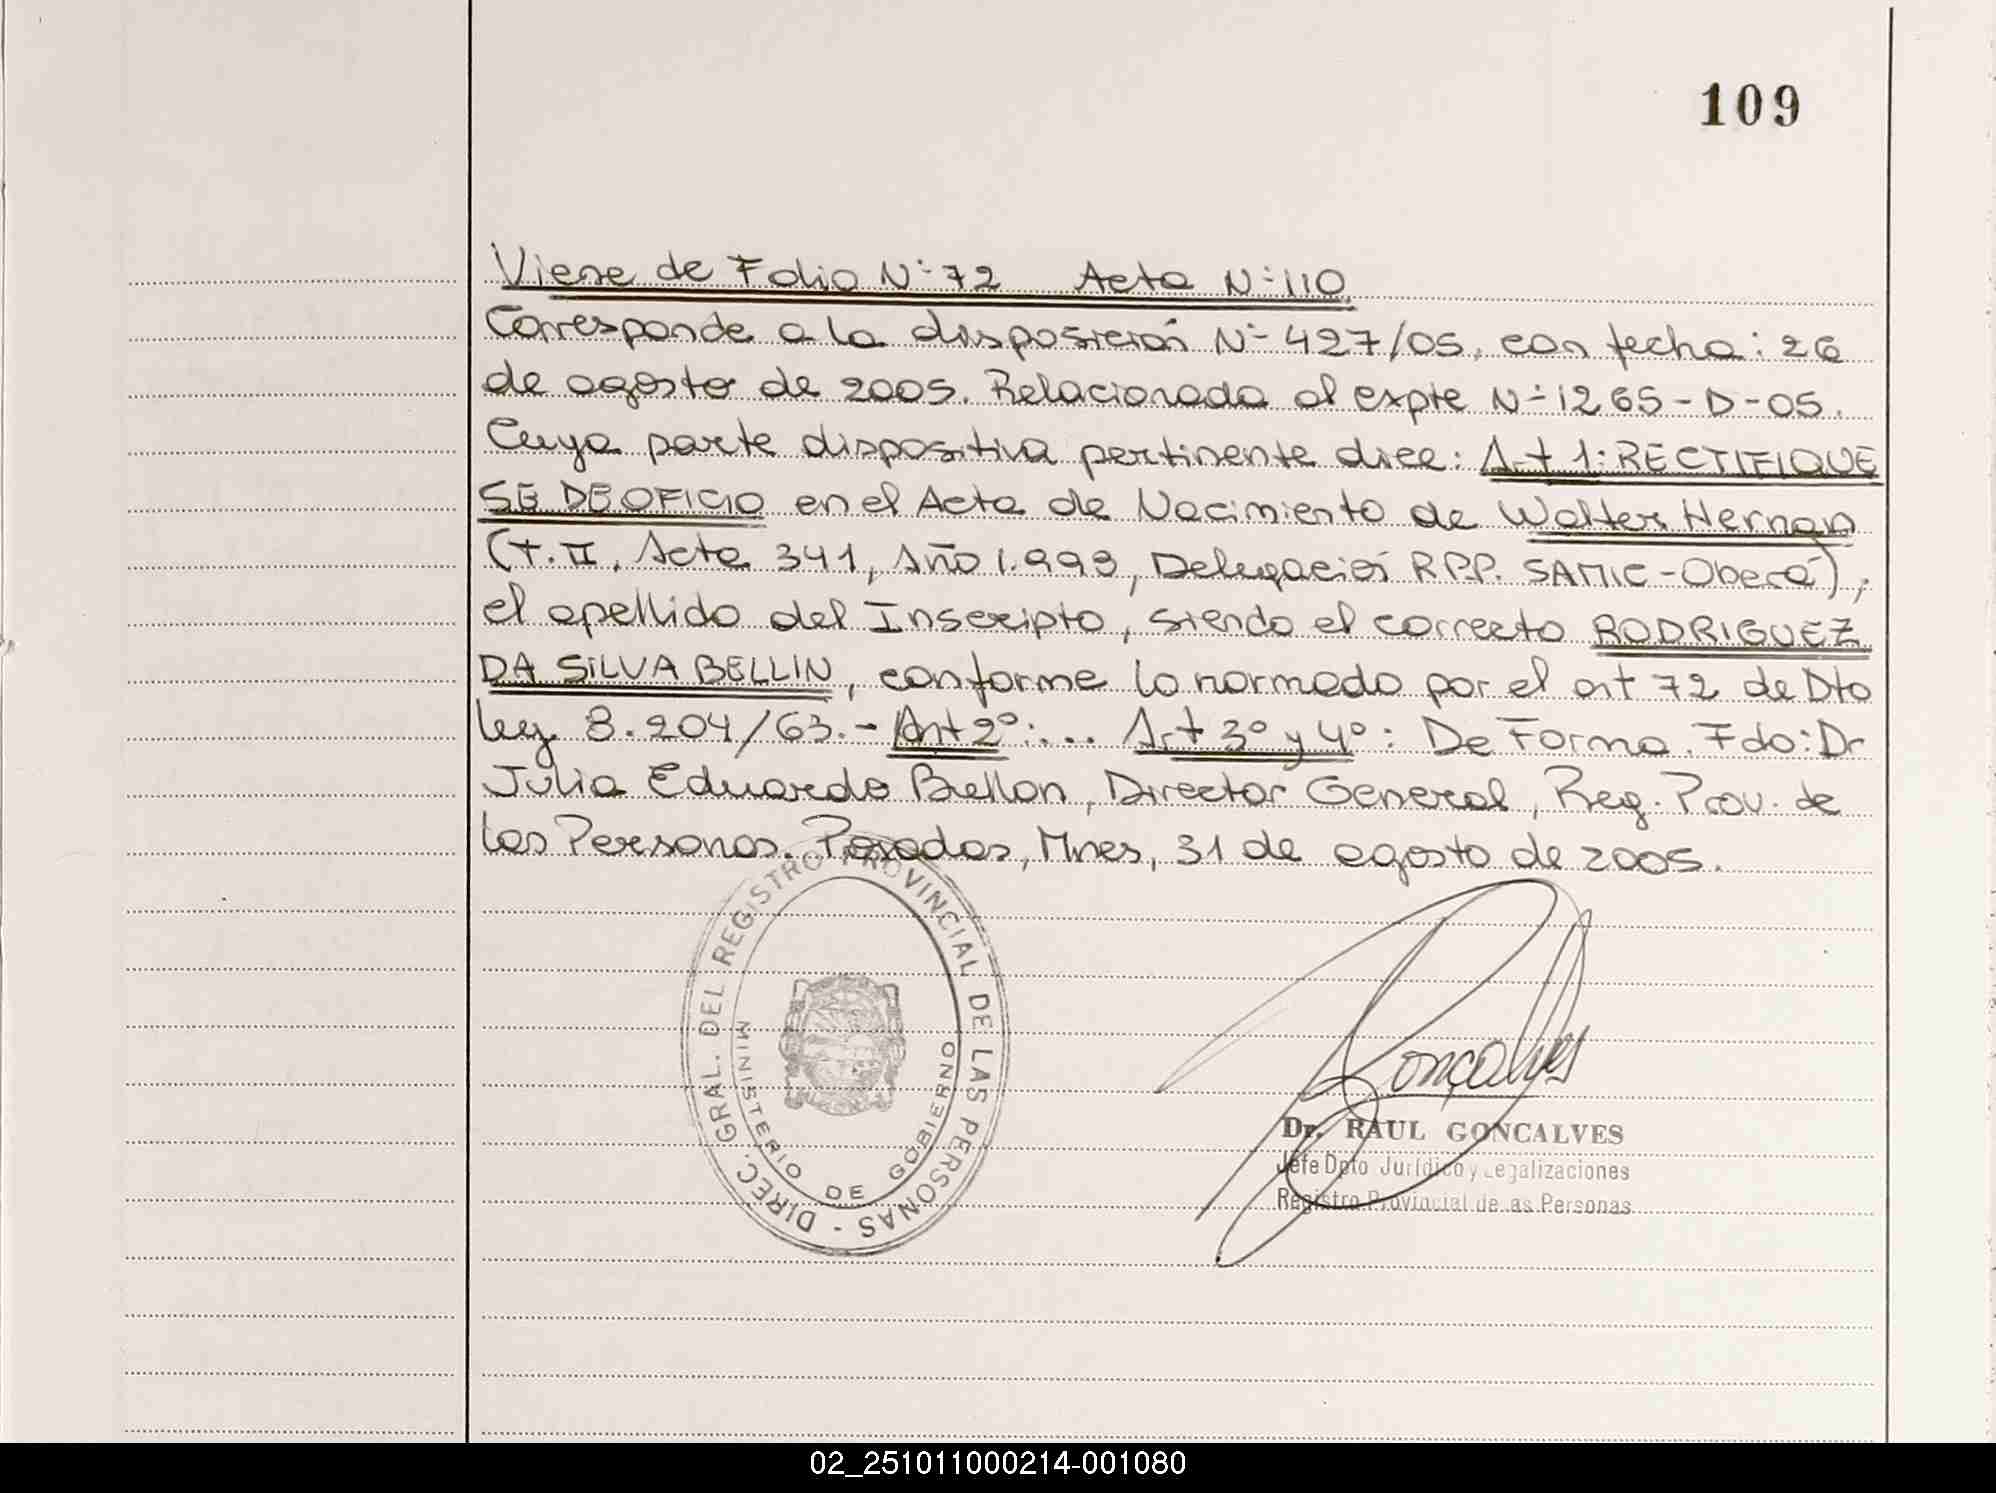 109
Viene de Folio Nº 72 Acta Nº 110
Corresponde a la disposición Nº 427/05, con fecha: 26
de agosto de 2005. Relacionada al expte Nº 1265-D-05.
Cuya parte dispositiva pertinente dice: Art 1: RECTIFIQUE
SE DE OFICIO en el Acta de Nacimiento de Walter Hernan
(T. II, Acta 341, Año 1.999, Delegación R.P.P. SAMIC - Oberá),
el apellido del Inscripto, siendo el correcto RODRIGUEZ
DA SILVA BELLIN, conforme lo normado por el art 72 de Dto
ley 8.204/63.- Art 2º:... Art 3º y 4º: De Forma. Fdo: Dr
Julio Eduardo Bellon, Director General, Reg. Prov. de
las Personas. Posadas, Mnes, 31 de agosto de 2005.
DIREC. GRAL. DEL REGISTRO PROVINCIAL DE LAS PERSONAS -
MINISTERIO DE GOBIERNO
Gonçalves
Dr. RAUL GONCALVES
Jefe Dpto Jurídico y Legalizaciones
Registro Provincial de las Personas
02_251011000214-001080